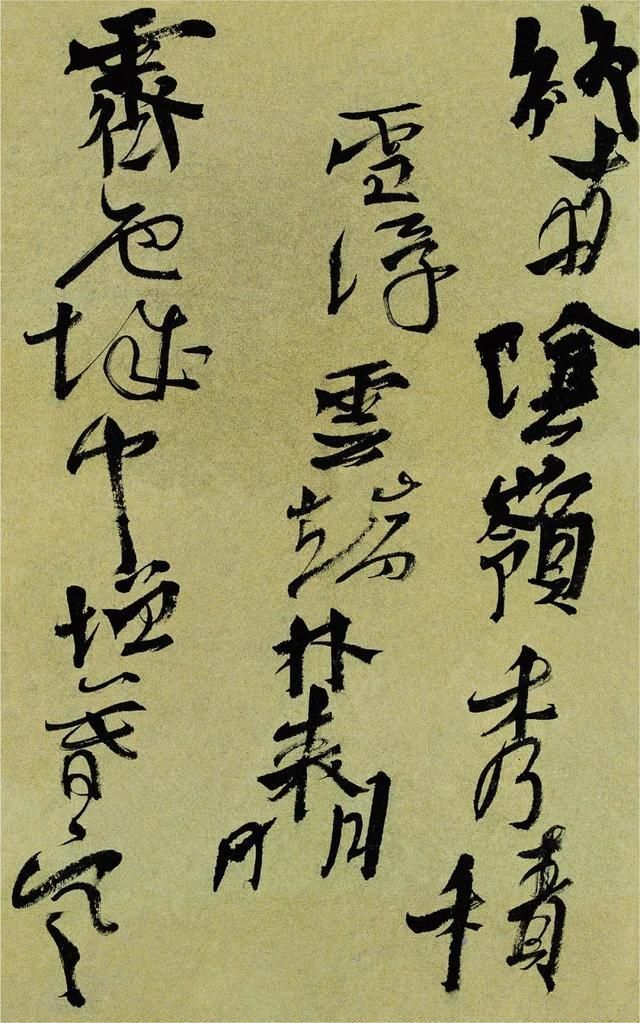 終南陰嶺秀積
雪浮雲端林表明
霽色城中增暮寒